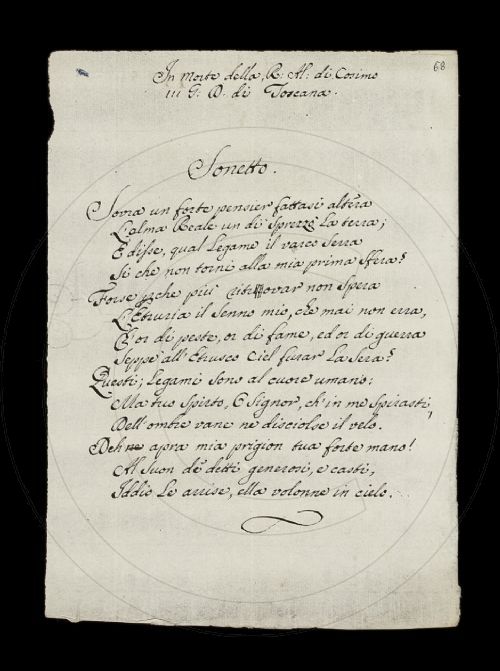 68
In Morte della R: Al: di Cosimo
III G: D: di Toscana.
Sonetto.
Sovra un forte pensier fattasi altera
L'alma Reale un dì Sprezzò La terra;
E disse, qual Legame il varco Serra
Sì che non torni alla mia prima Sfera?
Forse perche più ritrovar non Spera
L'Etruria il Senno mio, che mai non erra,
Ch'or di peste, or di fame, ed or di guerra
Seppe all'Etrusco Ciel furar La Sera?
Questi; Legami Sono al cuore umano;
Ma tuo Spirto, O Signor, ch'in me Spirasti,
Dell'ombre vane ne disciolse il velo.
Deh apra mia prigion tua forte mano!
Al Suon de detti generosi, e casti,
Iddio Le arrise, ella volonne in cielo.